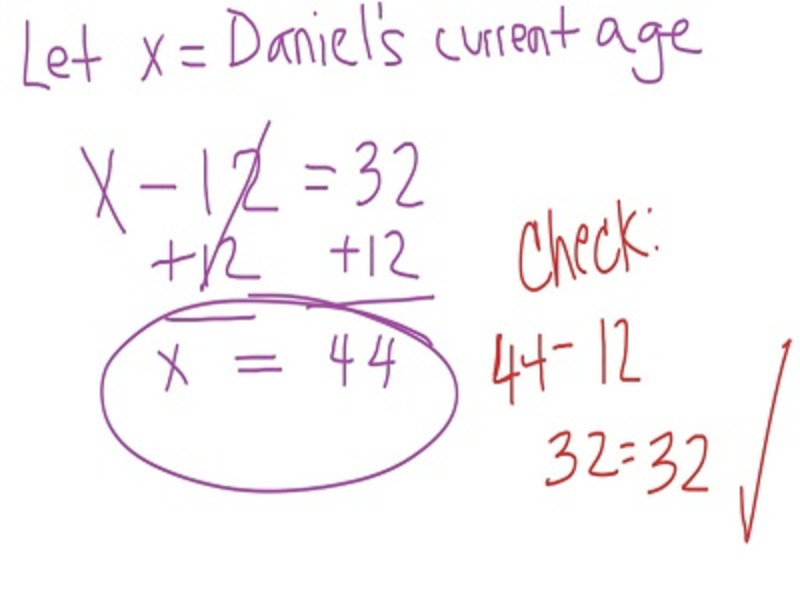 Let x = Daniel's current age
x - 12 = 32
+12 +12
x = 44
Check:
44 - 12
32 = 32